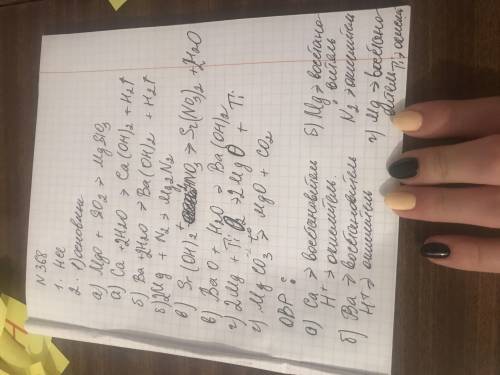 N 368
1. Нее
2. 1) основным
а) MgO + SiO₂ → MgSiO₃
а) Ca + 2H₂O → Ca(OH)₂ + H₂↑
б) Ba + 2H₂O → Ba(OH)₂ + H₂↑
б) 2Mg + N₂ → Mg₂N₂
в) Sr(OH)₂ + HNO₃ → Sr(NO₃)₂ + 2H₂O
в) BaO + H₂O → Ba(OH)₂
г) 2Mg + Ti → 2MgO + Ti
г) MgCO₃ → MgO + CO₂
ОВР:
а) Ca → восстановитель
H⁺ → окислитель.
б) Ba → восстановитель
H⁺ → окислитель
б) Mg → восстано-
витель
N₂ → окислитель
г) Mg → восстано-
витель
Ti → окисл